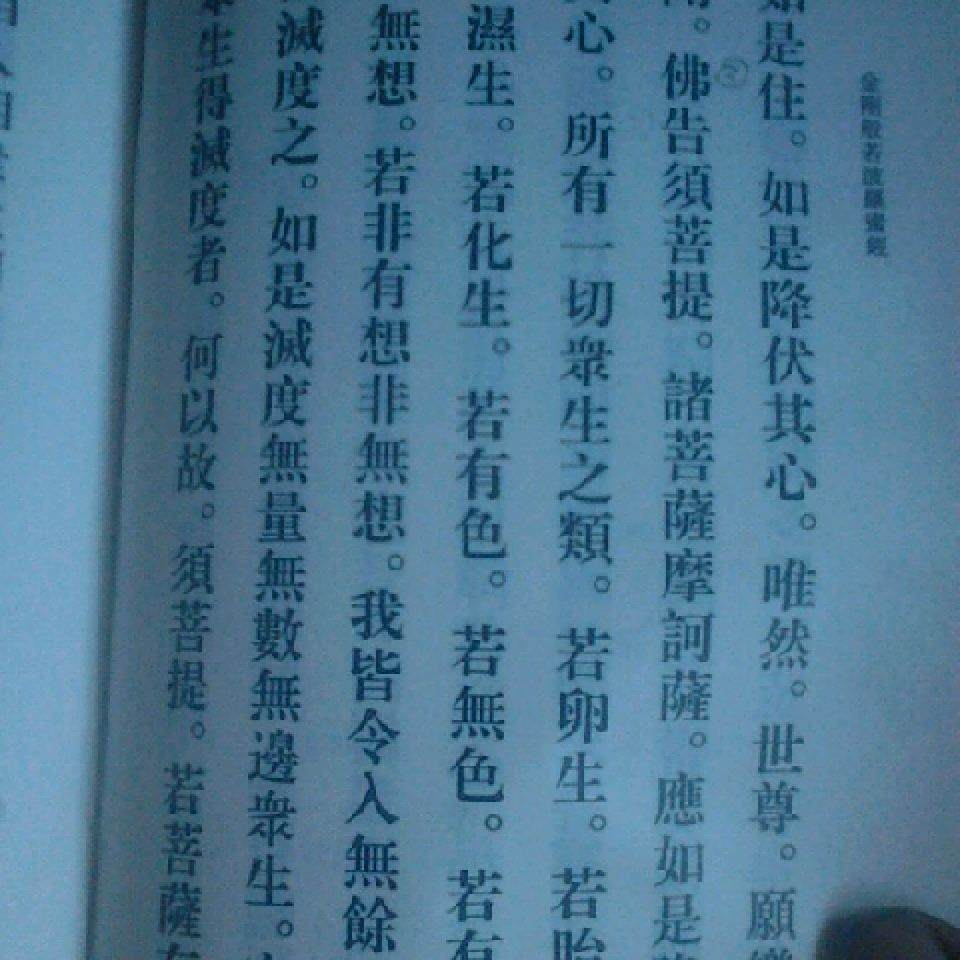 金剛般若波羅蜜經
如是住。如是降伏其心。唯然。世尊。願樂
聞。佛告須菩提。諸菩薩摩訶薩。應如是
心。所有一切眾生之類。若卵生。若胎
濕生。若化生。若有色。若無色。若有
無想。若非有想非無想。我皆令入無餘
滅度之。如是滅度無量無數無邊眾生。
眾生得滅度者。何以故。須菩提。若菩薩有